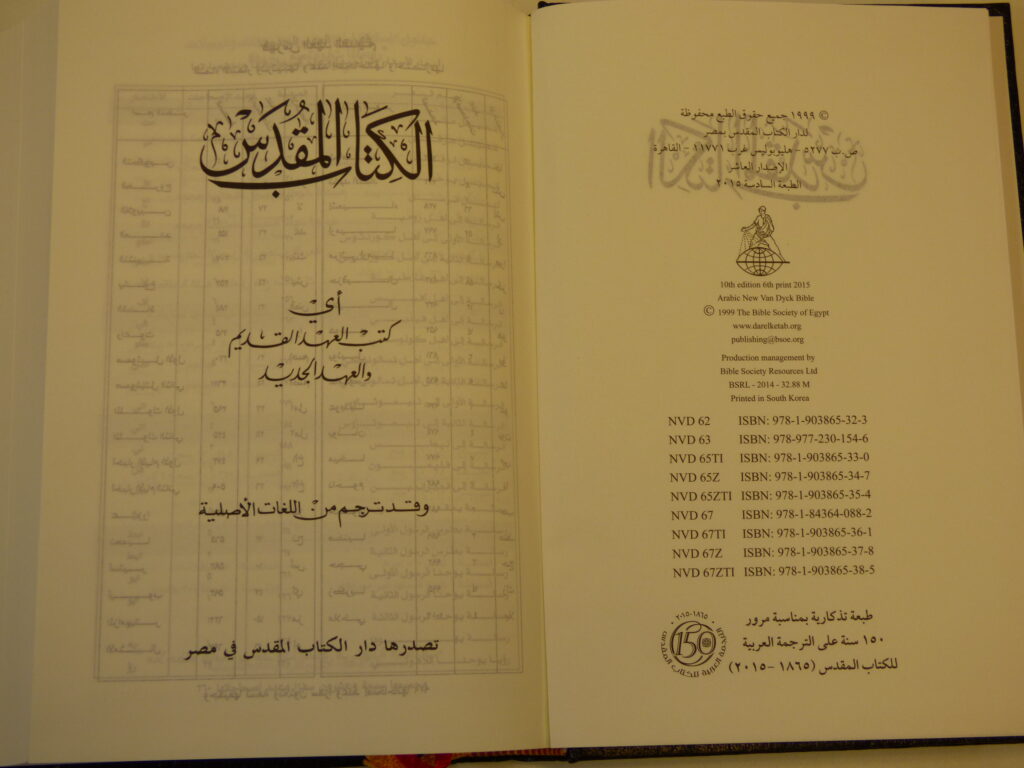 الكتاب المقدس
أي
كتب العهد القديم
والعهد الجديد
وقد ترجم من اللغات الأصلية
تصدرها دار الكتاب المقدس في مصر
© ١٩٩٩ جميع حقوق الطبع محفوظة
لدار الكتاب المقدس بمصر
ص.ب ٥٢٧٧ – هليوبوليس غرب ١١٧٧١ – القاهرة
الإصدار العاشر
الطبعة السادسة ٢٠١٥
10th edition 6th print 2015
Arabic New Van Dyck Bible
© 1999 The Bible Society of Egypt
www.darelketab.org
publishing@bsoe.org
Production management by
Bible Society Resources Ltd
BSRL - 2014 - 32.88 M
Printed in South Korea
NVD 62 ISBN: 978-1-903865-32-3
NVD 63 ISBN: 978-977-230-154-6
NVD 65TI ISBN: 978-1-903865-33-0
NVD 65Z ISBN: 978-1-903865-34-7
NVD 65ZTI ISBN: 978-1-903865-35-4
NVD 67 ISBN: 978-1-84364-088-2
NVD 67TI ISBN: 978-1-903865-36-1
NVD 67Z ISBN: 978-1-903865-37-8
NVD 67ZTI ISBN: 978-1-903865-38-5
طبعة تذكارية بمناسبة مرور
١٥٠ سنة على الترجمة العربية
للكتاب المقدس (١٨٦٥ – ٢٠١٥)
١٨٦٥-٢٠١٥
150